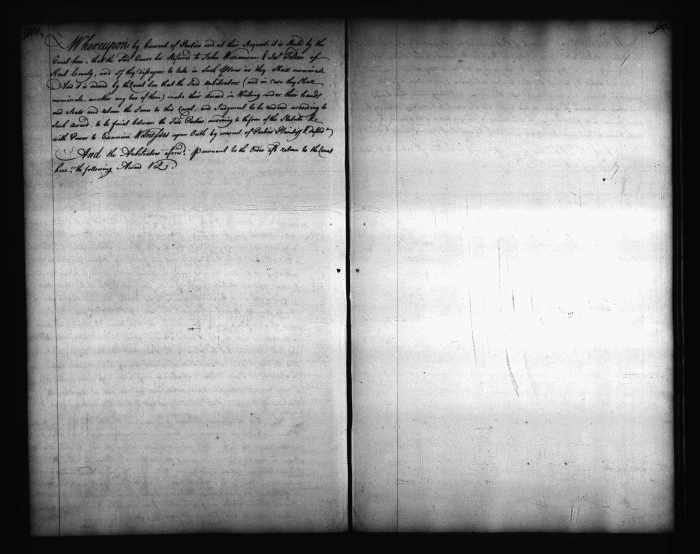 Whereupon by Consent of Parties and at their Request it is Ruled by the
Court here, that the said Cause be Referred to John Williamson & Jas
Kent County, and if they disagree to take in such Person as they shall nominate
And it is ordered by the Court here that the said Arbitrators (and in case they shall
nominate another any two of them) make their Award in Writing under their hands
and Seals and return the same to this Court, and Judgment to be entered according to
such Award to be final between the said Parties according to the form of the Statute &c
with Power to Examine Witnesses upon Oath by consent of Parties Plaintiff & Defend
And the Arbitrators pursuant to the Order afs return to the Court
here the following Award Viz.